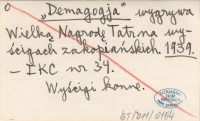 "Demagogja" wygrywa
Wielką Nagrodę Tatr na wy-
ścigach zakopiańskich. 1939.
— IKC nr 34.
Wyścigi konne.